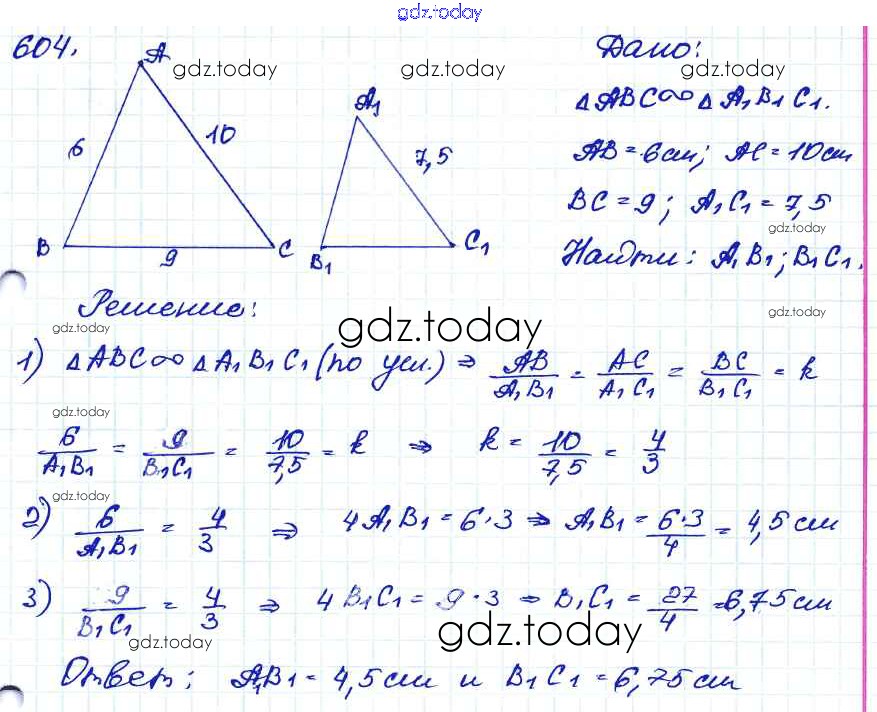 gdz.today
604.
A
gdz.today
gdz.today
Дано:
gdz.today
△ABC∞△A₁B₁C₁.
A₁
6
10
7,5
AB = 6см; AC = 10см
BC = 9; A₁C₁ = 7,5
gdz.today
B
C
9
B₁
C₁
Найти: A₁B₁; B₁C₁.
Решение:
gdz.today
gdz.today
gdz.today
1) △ABC∞△A₁B₁C₁ (по усл.) ⇒ AB/A₁B₁ = AC/A₁C₁ = BC/B₁C₁ = k
gdz.today
6/A₁B₁ = 9/B₁C₁ = 10/7,5 = k ⇒ k = 10/7,5 = 4/3
gdz.today
2) 6/A₁B₁ = 4/3 ⇒ 4A₁B₁ = 6·3 ⇒ A₁B₁ = 6·3/4 = 4,5см
3) 9/B₁C₁ = 4/3 ⇒ 4B₁C₁ = 9·3 ⇒ B₁C₁ = 27/4 = 6,75см
gdz.today
gdz.today
Ответ: A₁B₁ = 4,5см и B₁C₁ = 6,75см